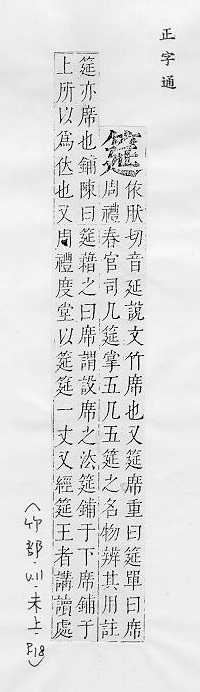 正字通
筵
依肰切音延說文竹席也又筵席重曰筵單曰席
周禮春官司几筵掌五几五筵之名物辨其用註
筵亦席也鋪陳曰筵藉之曰席謂設席之法筵鋪于下席鋪于
上所以為位也又周禮度堂以筵筵一丈又經筵王者講讀處